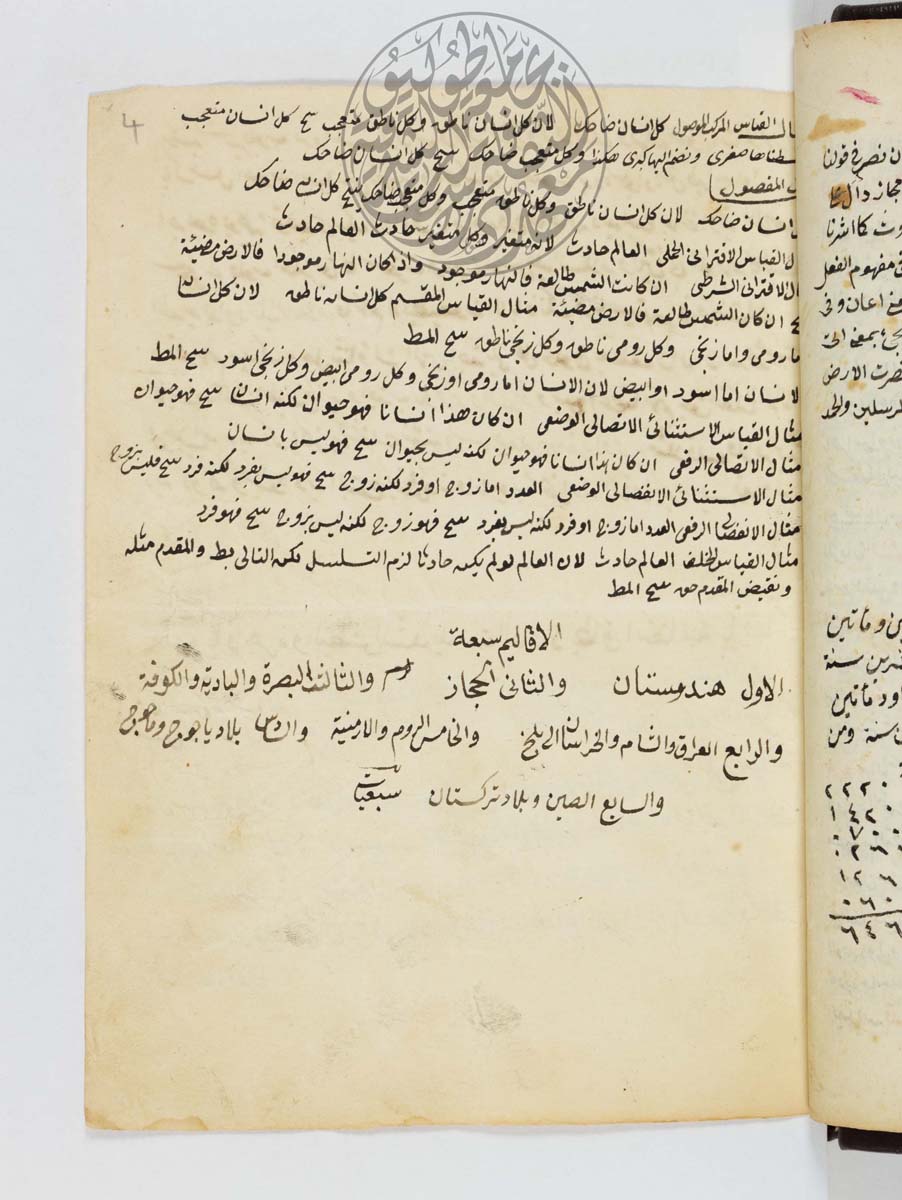 القياس المركب الموصول كل انسان ضاحك لان كل انسان ناطق وكل ناطق متعجب ينتج كل انسان متعجب
صغرى ونضم اليها كبرى هكذا وكل متعجب ضاحك ينتج كل انسان ضاحك
المفصول
انسان ضاحك لان كل انسان ناطق وكل ناطق متعجب وكل متعجب ضاحك ينتج كل انسان ضاحك
القياس الاقترانى الحملى العالم حادث لانه متغير وكل متغير حادث العالم حادث
الاقترانى الشرطى ان كانت الشمس طالعة فالنهار موجود واذا كان النهار موجودا فالارض مضيئة
ان كان الشمس طالعة فالارض مضيئة مثال القياس المقسم كل انسان ناطق لان كل انسان
اما رومى واما زنجى وكل رومى ناطق وكل زنجى ناطق ينتج المط
الانسان اما اسود او ابيض لان الانسان اما رومى او زنجى وكل رومى ابيض وكل زنجى اسود ينتج المط
مثال القياس الاستثنائى الاتصالى الوضعى ان كان هذا انسانا فهو حيوان لكنه انسان ينتج فهو حيوان
مثال الاتصالى الرفعى ان كان هذا انسانا فهو حيوان لكنه ليس بحيوان ينتج فهو ليس بانسان
مثال الاستثنائى الانفصالى الوضعى العدد اما زوج او فرد لكنه زوج ينتج فهو ليس بفرد لكنه فرد ينتج فليس بزوج
مثال الانفصالى الرفعى العدد اما زوج او فرد لكنه ليس بفرد ينتج فهو زوج لكنه ليس بزوج ينتج فهو فرد
مثال القياس الخلف العالم حادث لان العالم لو لم يكن حادثا لزم التسلسل لكن التالى بط والمقدم مثله
ونقيض المقدم حق ينتج المط
الاقاليم سبعة
الاول هندوستان والثانى الحجاز والثالث البصرة والبادية والكوفة
والرابع العراق والشام والخراسان الى بلخ والخامس الروم والارمنية والسادس بلاد ياجوج وماجوج
والسابع الصين وبلاد تركستان سبعيات
ن نصر فى قولنا
مجاز دال
كما اشرنا
مفهوم الفعل
بمعنى
الارض
المرسلين والحمد
ومأتين
سنة
ومأتين
سنة ومن